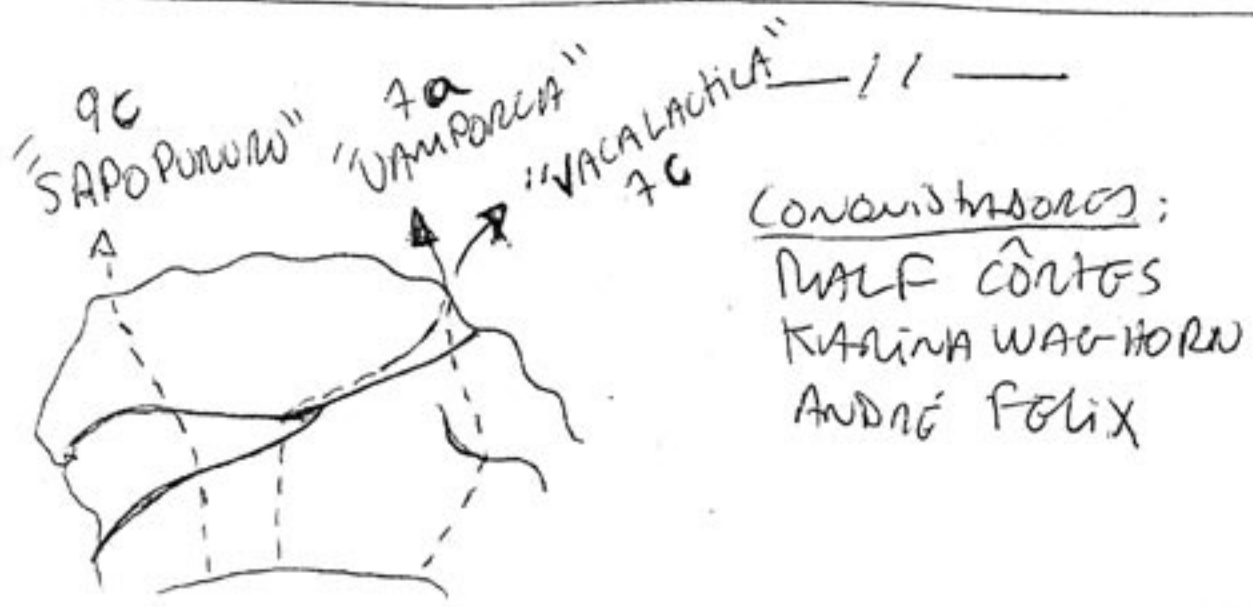 9c
"SAPOPURURU"
7a
"VAMPORCA"
"VACALACTICA" — // —
7c
CONQUISTADORES:
RALF CÔRTES
KARINA WAGHORN
ANDRÉ FELIX